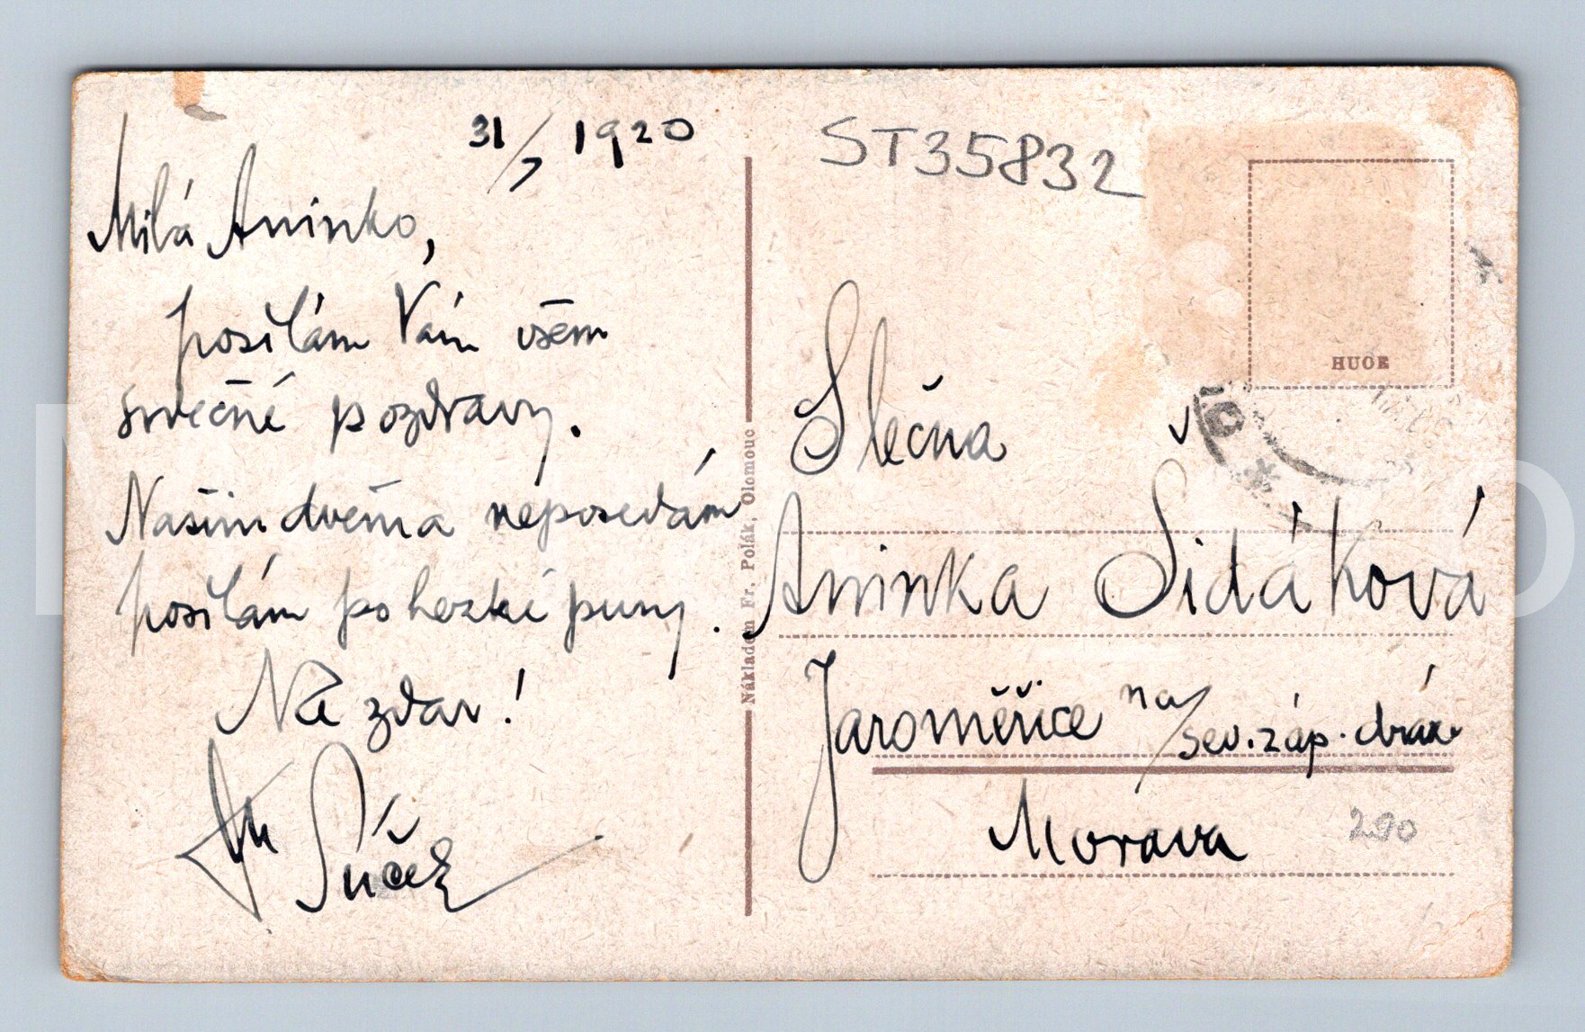 31/7 1920
Milá Aninko,
posílám Vám všem
srdečné pozdravy.
Našim dvěma neposedám
posílám po hezké pusy.
Na zdar!
Súček
Nákladem Fr. Polák, Olomouc
ST35832
HUOR
Slečna
Aninka Šidáková
Jaroměřice na/sev.záp.dráze
Morava
290